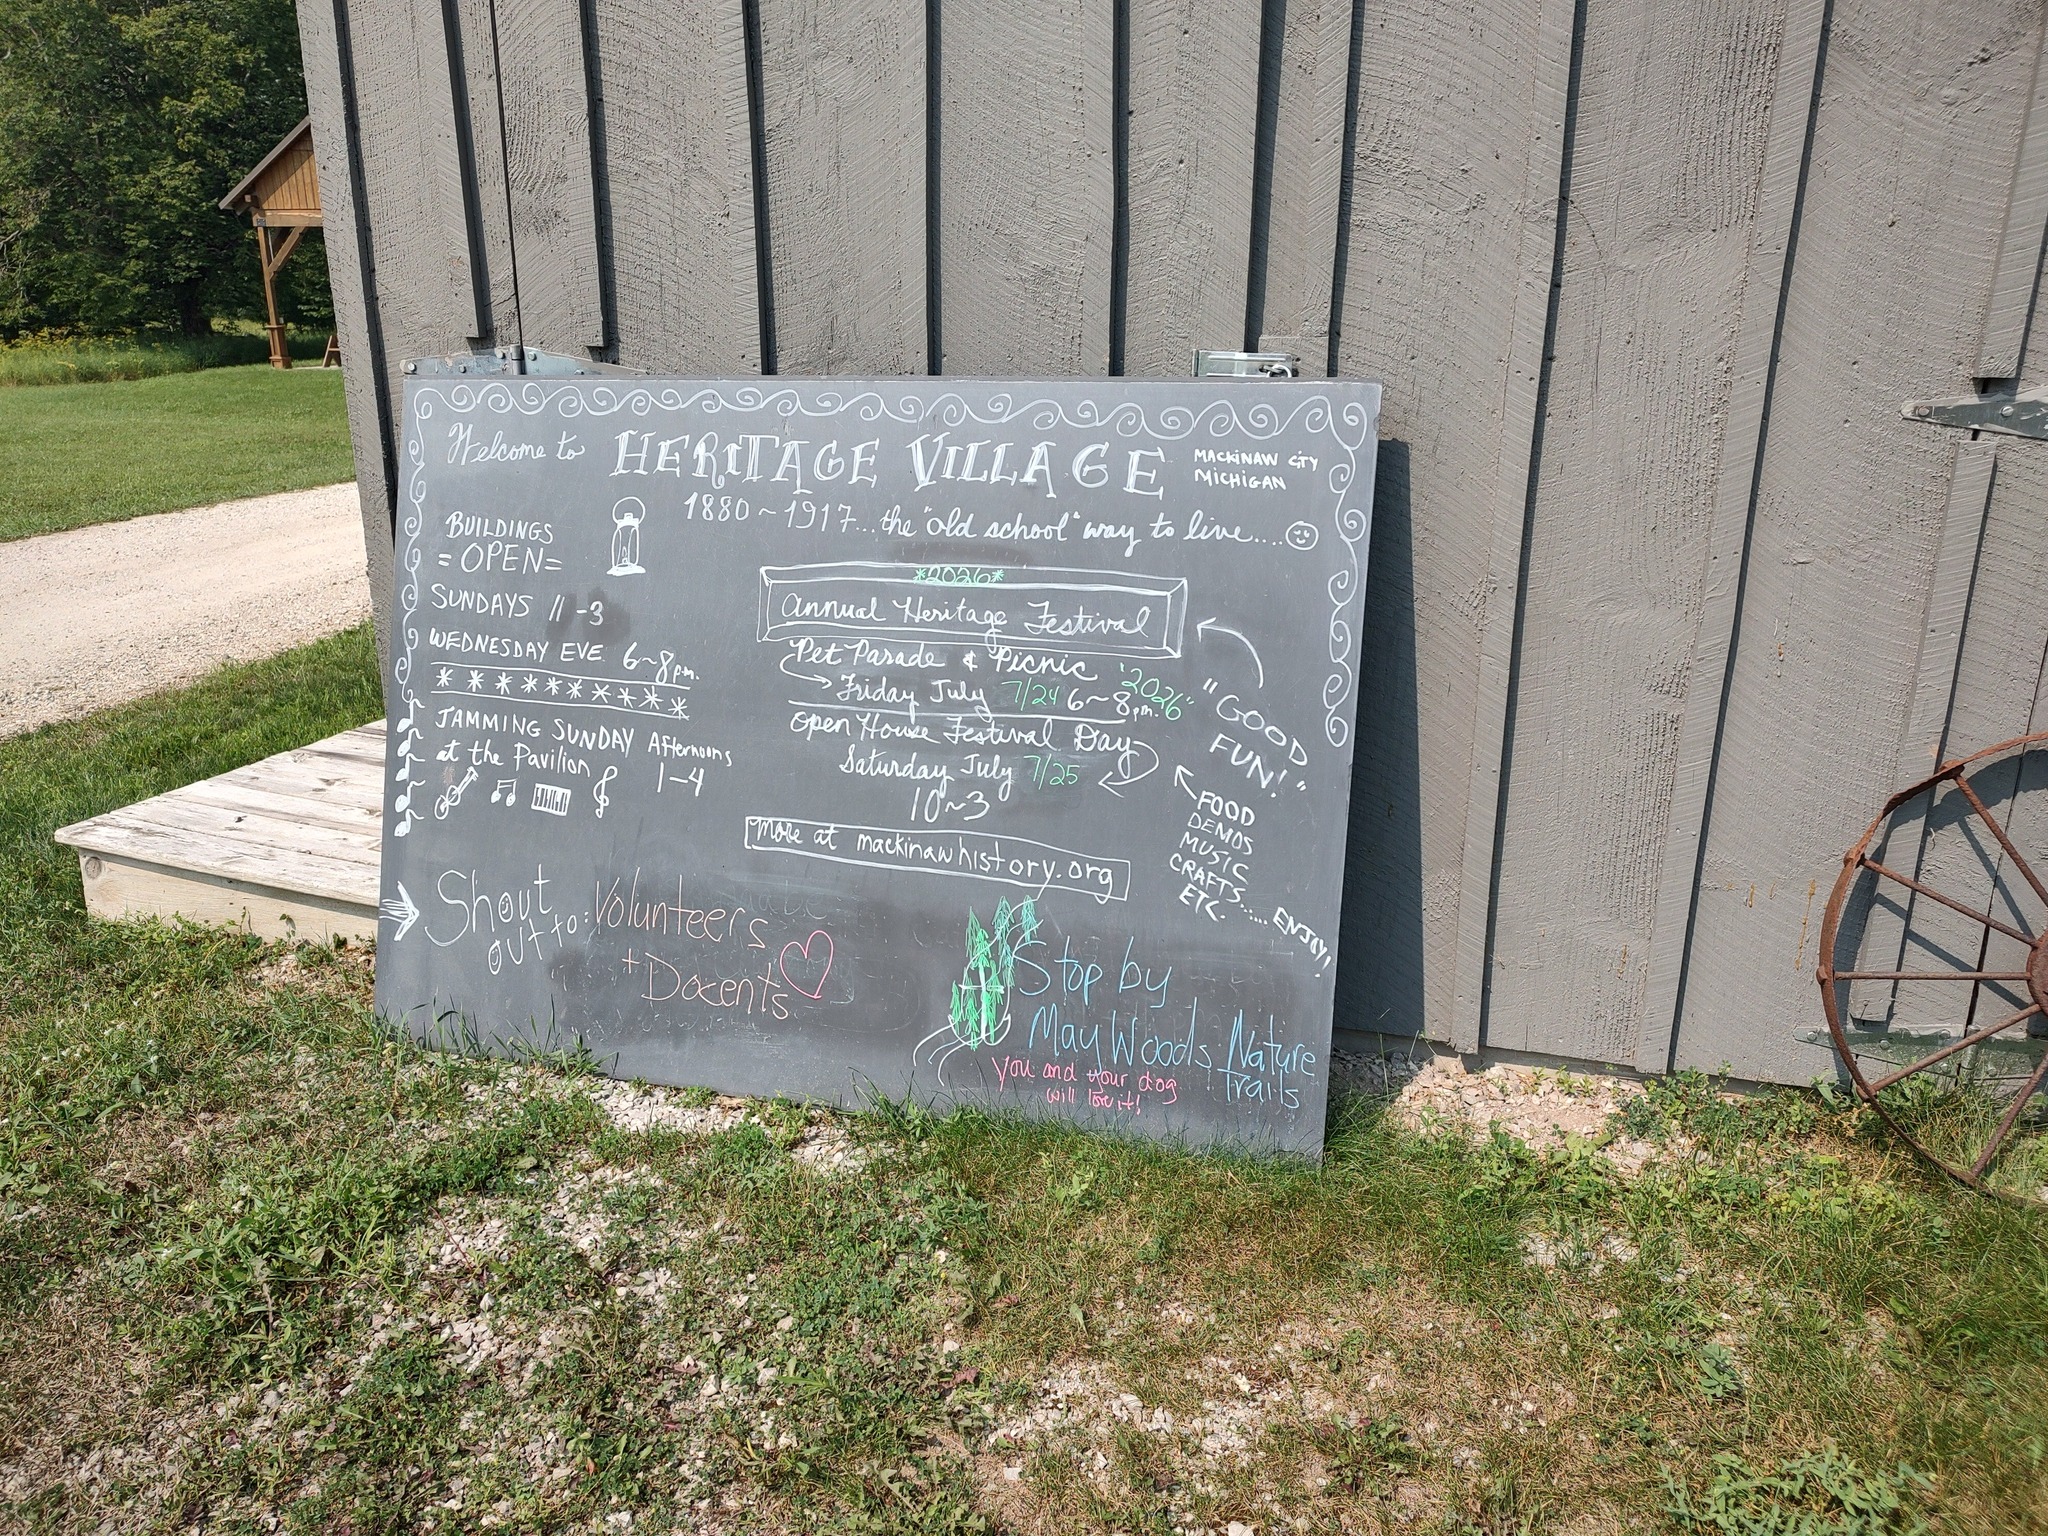 Welcome to HERITAGE VILLAGE MACKINAW CITY
MICHIGAN
1880~1917...the "old school" way to live....
BUILDINGS
=OPEN=
SUNDAYS 11-3
WEDNESDAY EVE 6~8pm.
* * * * * * * * * *
JAMMING SUNDAY Afternoons
at the Pavilion 1-4
*2026*
Annual Heritage Festival
Pet Parade & Picnic "2026"
Friday July 7/24 6~8pm.
Open House Festival Day
Saturday July 7/25
10~3
More at mackinawhistory.org
"GOOD
FUN!"
FOOD
DEMOS
MUSIC
CRAFTS.....
ETC. ENJOY!
Shout
out to: Volunteers
+ Docents
Stop by
May Woods Nature
Trails
You and your dog
will love it!